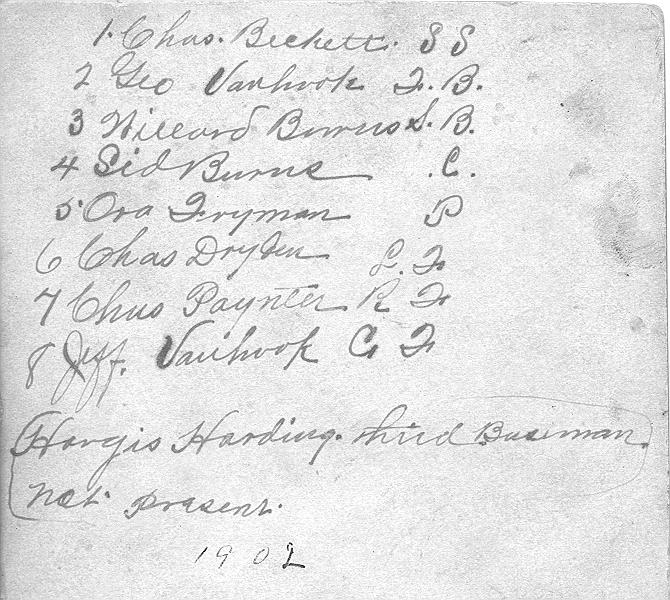 1. Chas. Beckett. S S
2 Geo Vanhook F. B.
3 Willard Burns S. B.
4 Sid Burns .C.
5 Ora Fryman P
6 Chas Dryden L. F
7 Chas Paynter R F
8 Jeff. Vanhook C F
Hargis Harding. third Baseman.
not present.
1902